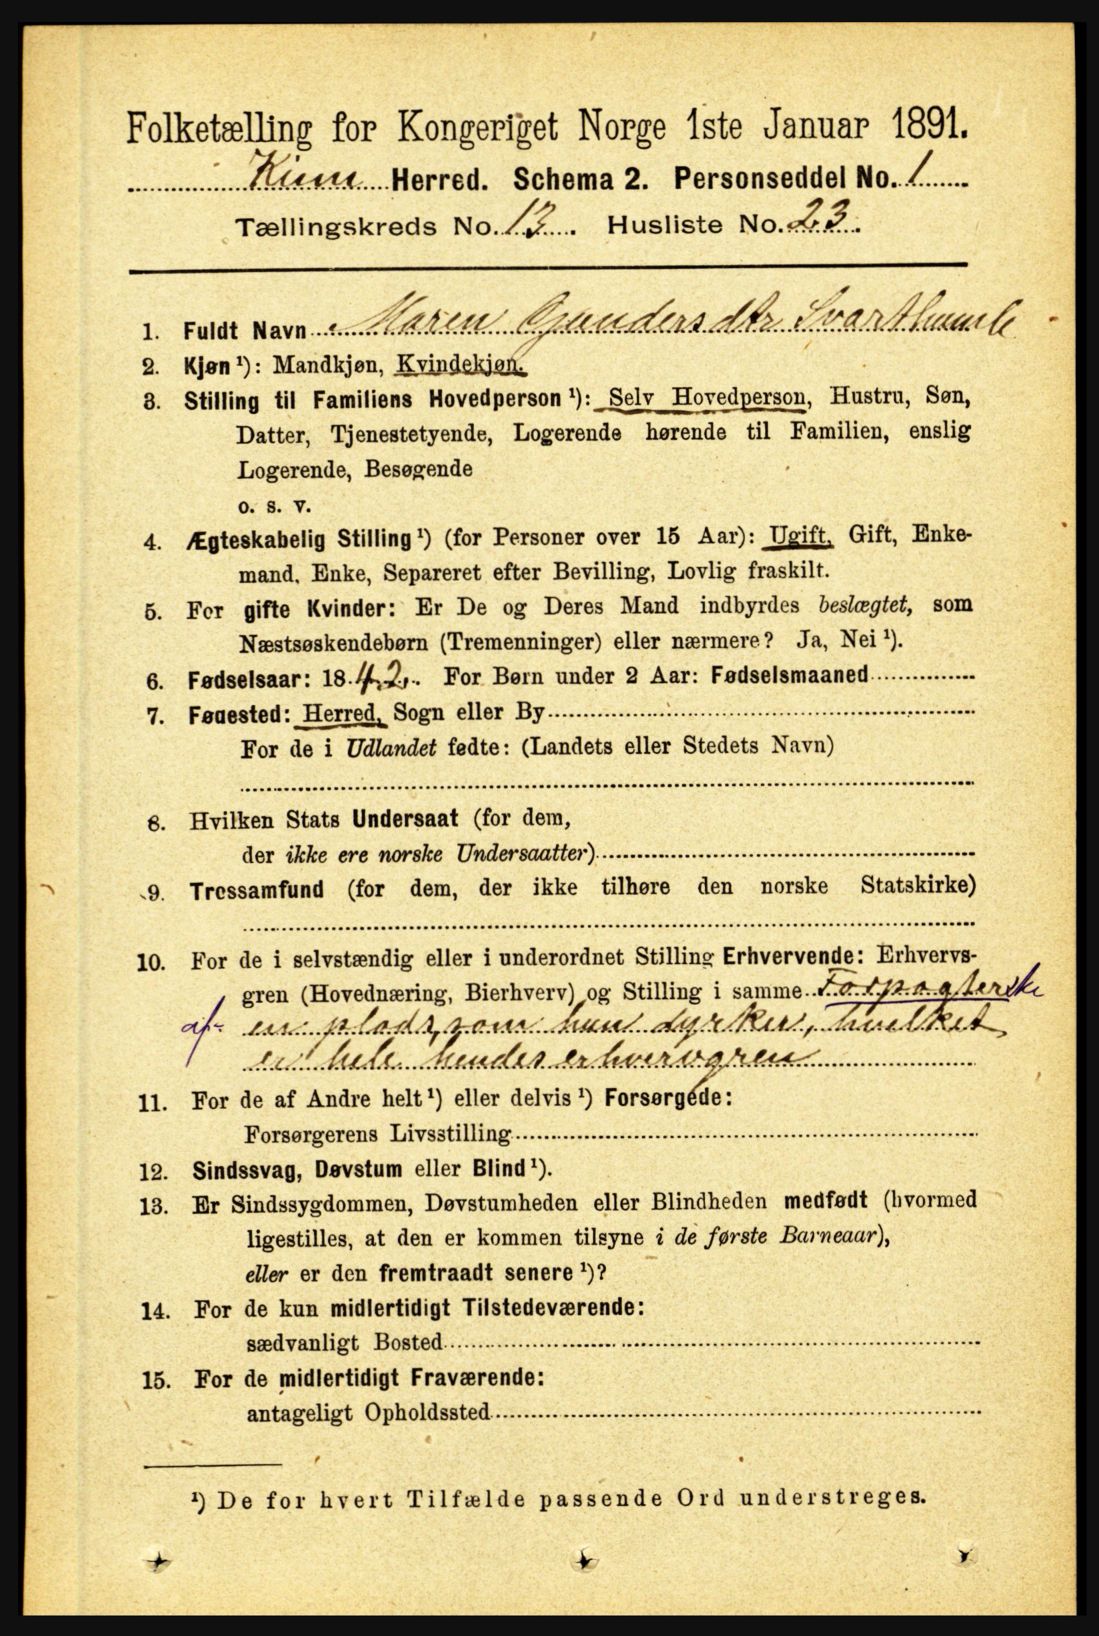 Folketælling for Kongeriget Norge 1ste Januar 1891.
Kinn Herred. Schema 2. Personseddel No. 1
Tællingskreds No. 13. Husliste No. 23.
1. Fuldt Navn Maren Gundersdtr Svarthumle
2. Kjøn ¹): Mandkjøn, Kvindekjøn.
3. Stilling til Familiens Hovedperson ¹): Selv Hovedperson, Hustru, Søn,
Datter, Tjenestetyende, Logerende hørende til Familien, enslig
Logerende, Besøgende
o. s. v.
4. Ægteskabelig Stilling ¹) (for Personer over 15 Aar): Ugift, Gift, Enke-
mand, Enke, Separeret efter Bevilling, Lovlig fraskilt.
5. For gifte Kvinder: Er De og Deres Mand indbyrdes beslægtet, som
Næstsøskendebørn (Tremenninger) eller nærmere? Ja, Nei ¹).
6. Fødselsaar: 1842. For Børn under 2 Aar: Fødselsmaaned
7. Fødested: Herred, Sogn eller By
For de i Udlandet fødte: (Landets eller Stedets Navn)
8. Hvilken Stats Undersaat (for dem,
der ikke ere norske Undersaatter)
9. Trossamfund (for dem, der ikke tilhøre den norske Statskirke)
10. For de i selvstændig eller i underordnet Stilling Erhvervende: Erhvervs-
gren (Hovednæring, Bierhverv) og Stilling i samme Forpagterske
af en plads, som hun dyrker, hvilket
er hele hendes erhvervgren
11. For de af Andre helt ¹) eller delvis ¹) Forsørgede:
Forsørgerens Livsstilling
12. Sindssvag, Døvstum eller Blind ¹).
13. Er Sindssygdommen, Døvstumheden eller Blindheden medfødt (hvormed
ligestilles, at den er kommen tilsyne i de første Barneaar),
eller er den fremtraadt senere ¹)?
14. For de kun midlertidigt Tilstedeværende:
sædvanligt Bosted
15. For de midlertidigt Fraværende:
antageligt Opholdssted
¹) De for hvert Tilfælde passende Ord understreges.